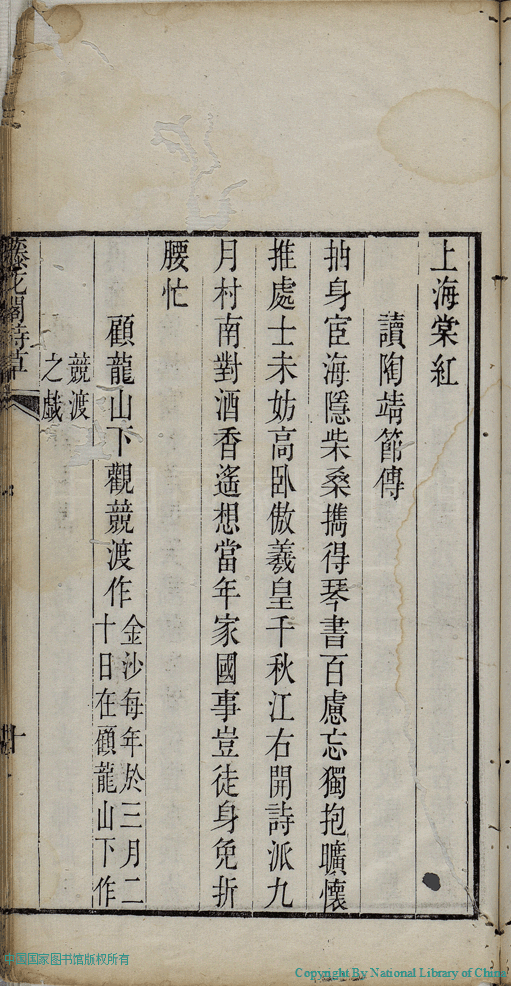 上海棠紅
讀陶靖節傳
抽身宦海隱柴桑攜得琴書百慮忘獨抱曠懷
推處士未妨高臥傲羲皇千秋江右開詩派九
月村南對酒香遙想當年家國事豈徒身免折
腰忙
顧龍山下觀競渡作
金沙每年於三月二
十日在顧龍山下作
競渡
之戯
藤花閣詩草
十
中国国家图书馆版权所有
Copyright By National Library of China